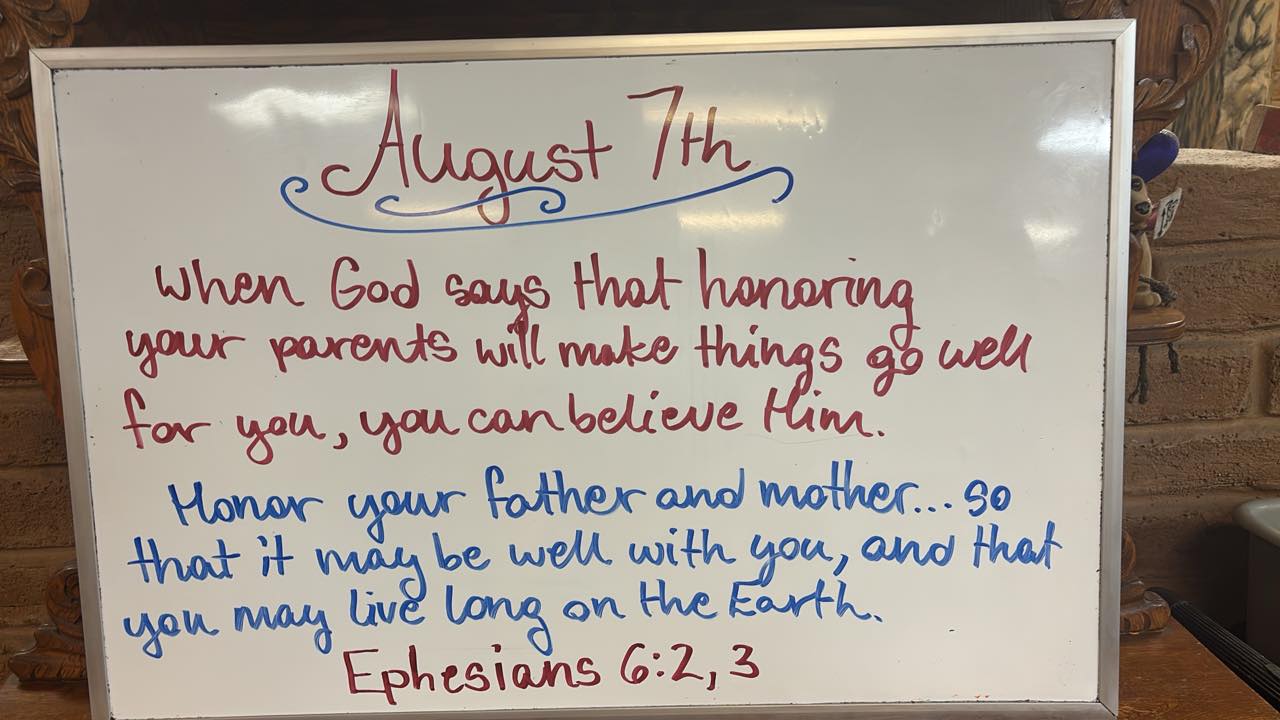 August 7th
When God says that honoring
your parents will make things go well
for you, you can believe Him.
Honor your father and mother... so
that it may be well with you, and that
you may live long on the Earth.
Ephesians 6:2, 3